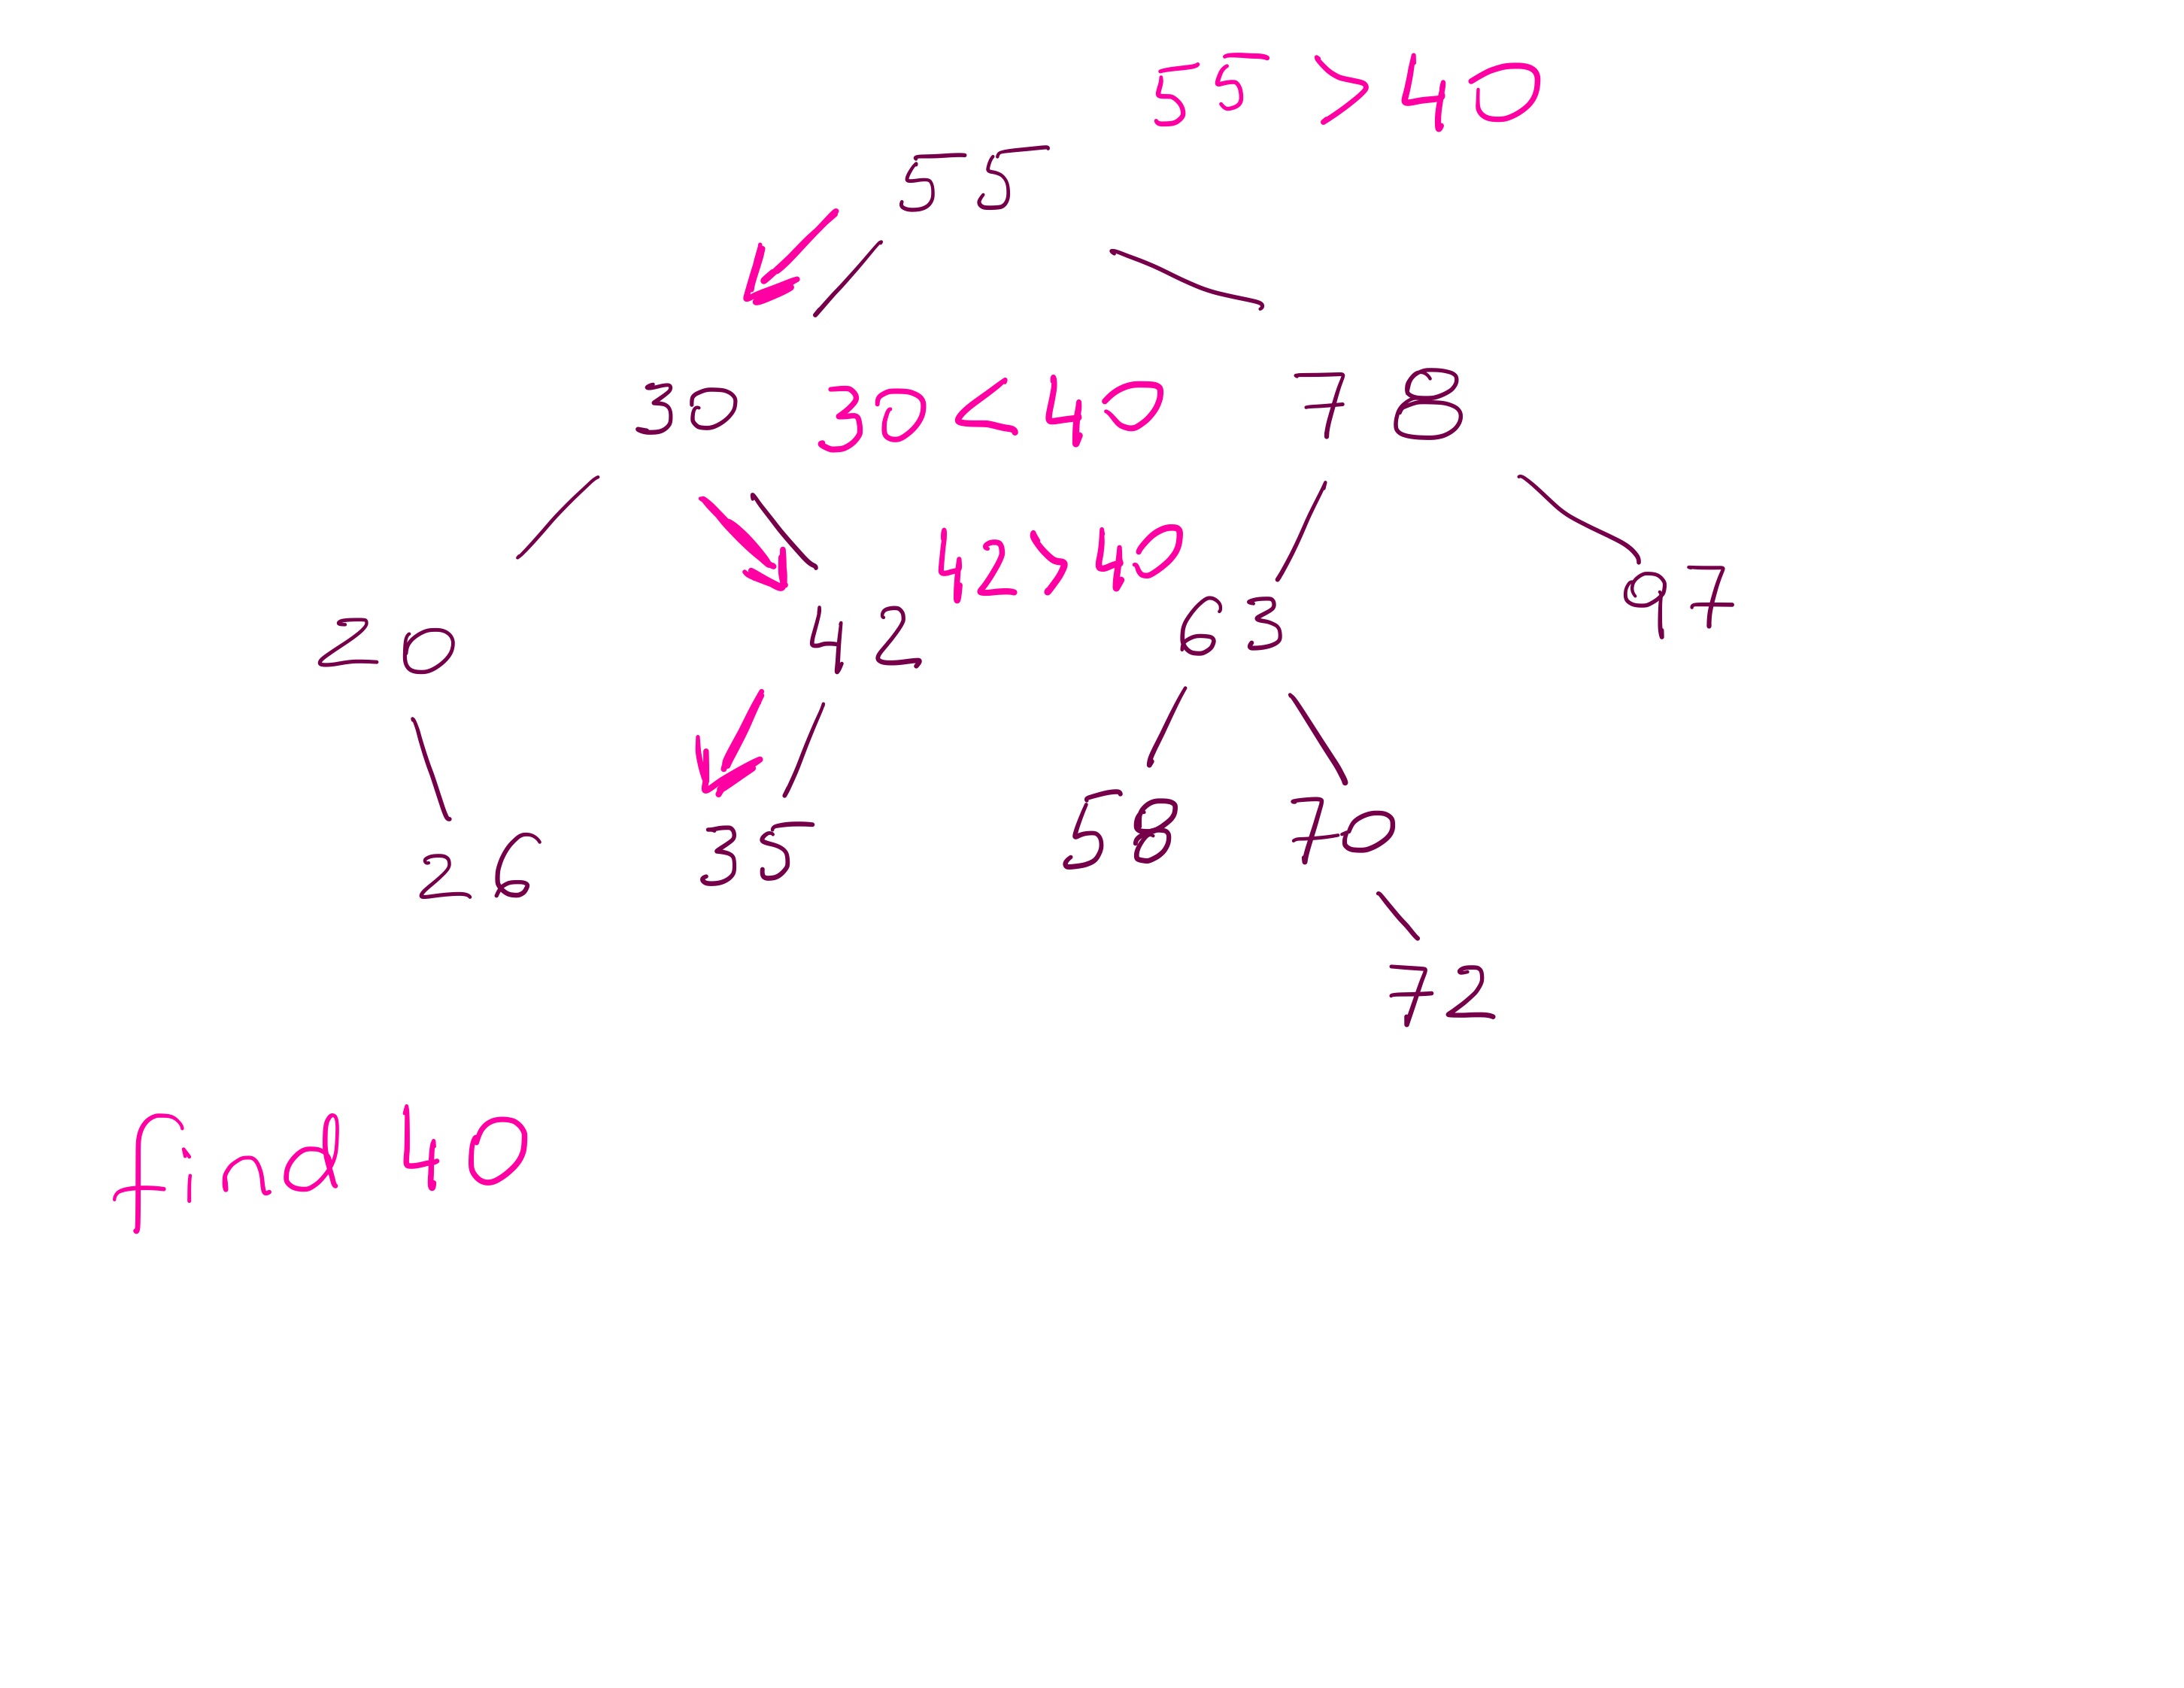 55 > 40
55
30 30 < 40 78
42 > 40
20 42 63 97
26 35 58 70
72
find 40